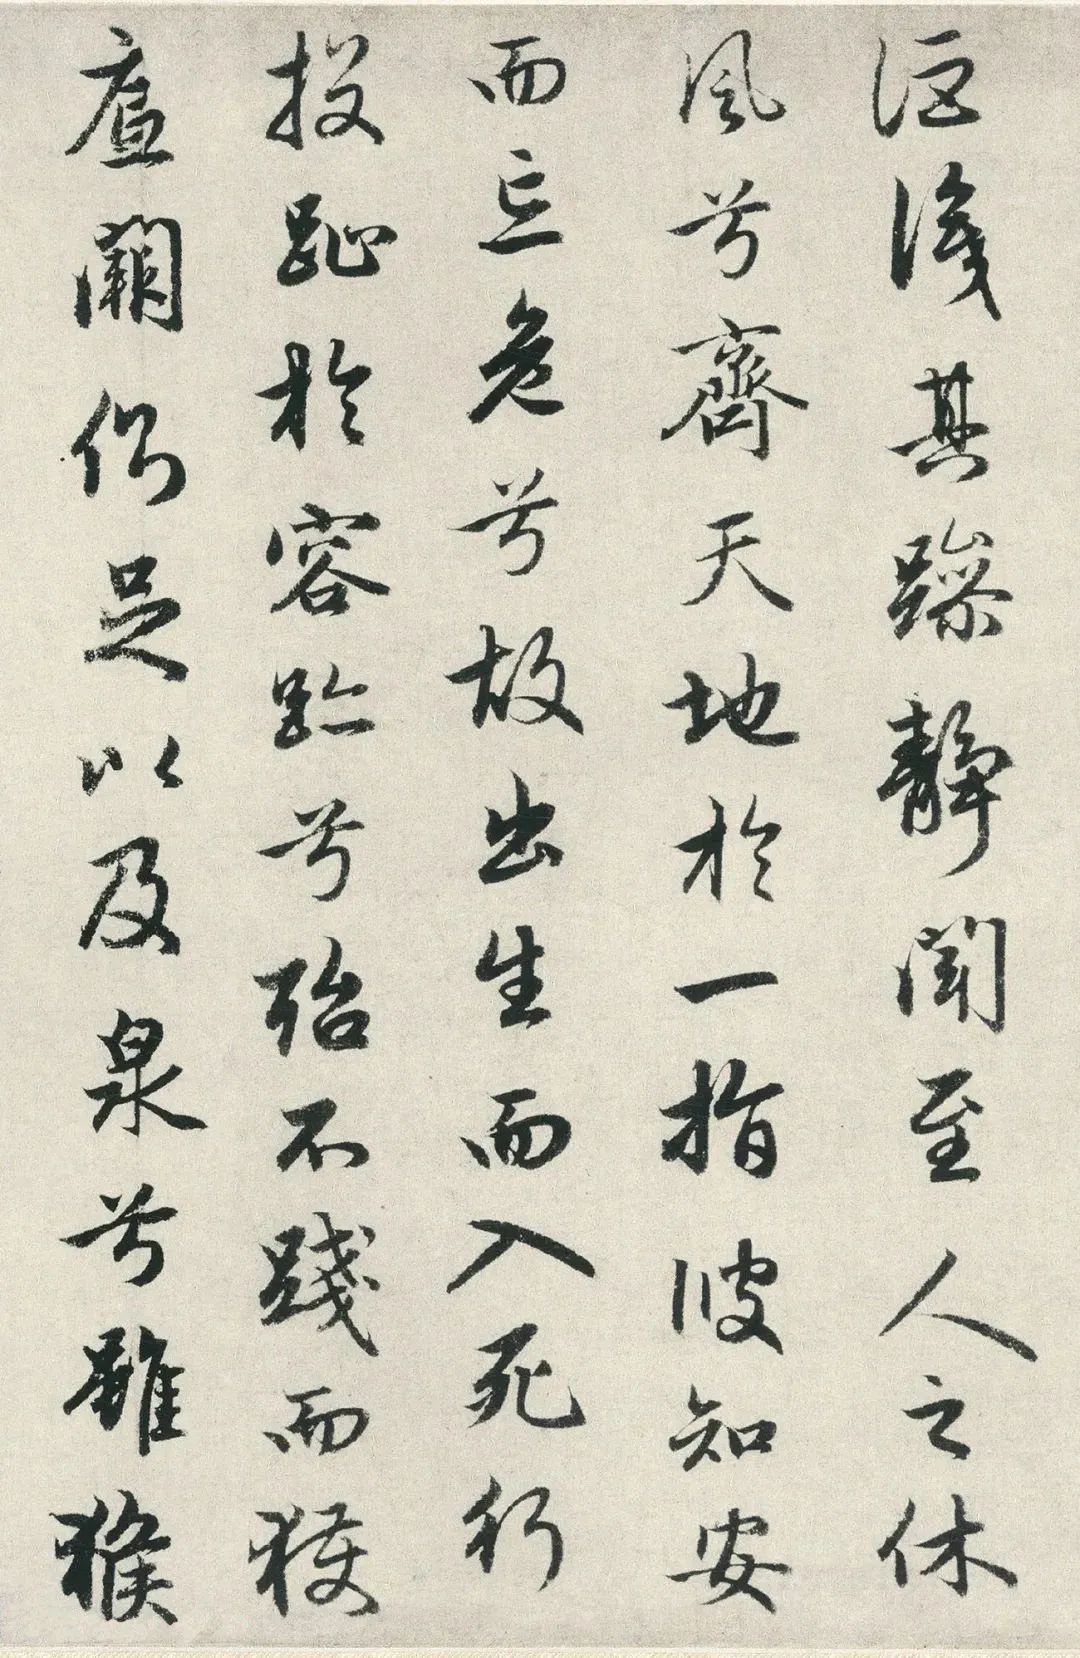 詎識其躁靜聞至人之休
風兮齊天地於一指彼知安
而忘危兮故出生而入死行
投趾於容跡兮殆不踐而獲
底闕側足以及泉兮雖猴